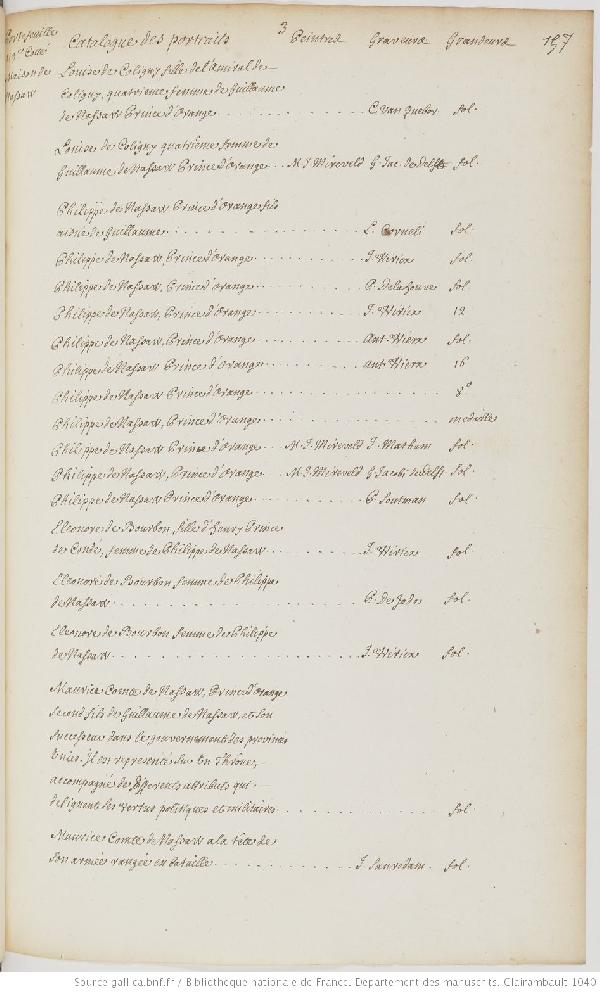 3
157
Portefeuille
Cotté
maison de
Nassaw
Catalogue des portraits Peintres Graveurs Grandeurs
Louise de Coligny fille de l'Amiral de
Coligny, quatrieme femme de Guillaume
de Nassaw Prince d'Orange . . . C. Van Queboy fol.
Louise de Coligny quatrieme femme de
Guillaume de Nassaw Prince d'Orange . . . M. J. Mireveld G. Jac. de Delft fol.
Philippe de Nassaw Prince d'Orange fils
aisné de Guillaume . . . L. Corneli fol.
Philippe de Nassaw Prince d'Orange . . . J. Wirica fol.
Philippe de Nassaw, Prince d'Orange . . . P. Delahouue fol.
Philippe de Nassaw, Prince d'Orange . . . J. Wirica 12
Philippe de Nassaw, Prince d'Orange . . . Ant. Wierx fol.
Philippe de Nassaw Prince d'Orange . . . Ant. Wierx 16
Philippe de Nassaw Prince d'Orange . . . 8°
Philippe de Nassaw, Prince d'Orange . . . medaille
Philippe de Nassaw Prince d'Orange . . . M. J. Mireveld J. Matham fol.
Philippe de Nassaw, Prince d'Orange . . . M. J. Mireveld G. Jacobi de Delft fol.
Philippe de Nassaw Prince d'Orange . . . P. Soutman fol.
Eleonore de Bourbon fille d'henry Prince
de Condé, femme de Philippe de Nassaw . . . J. Wirica fol.
Eleonore de Bourbon femme de Philippe
de Nassaw . . . P. De Jode fol.
Eleonore de Bourbon femme de Philippe
de Nassaw . . . J. Wirica fol.
Maurice Comte de Nassaw, Prince d'Orange
second fils de Guillaume de Nassaw, et son
successeur dans le gouvernement des provinces
Unies. Il est representé sur Un Thrône,
accompagné de differents attributs qui
designent ses vertus politiques et militaires . . . fol.
Maurice Comte de Nassaw a la tete de
son armée rangée en bataille . . . J. Sauredam fol.
Source gallica.bnf.fr / Bibliothèque nationale de France. Département des manuscrits. Clairambault 1040